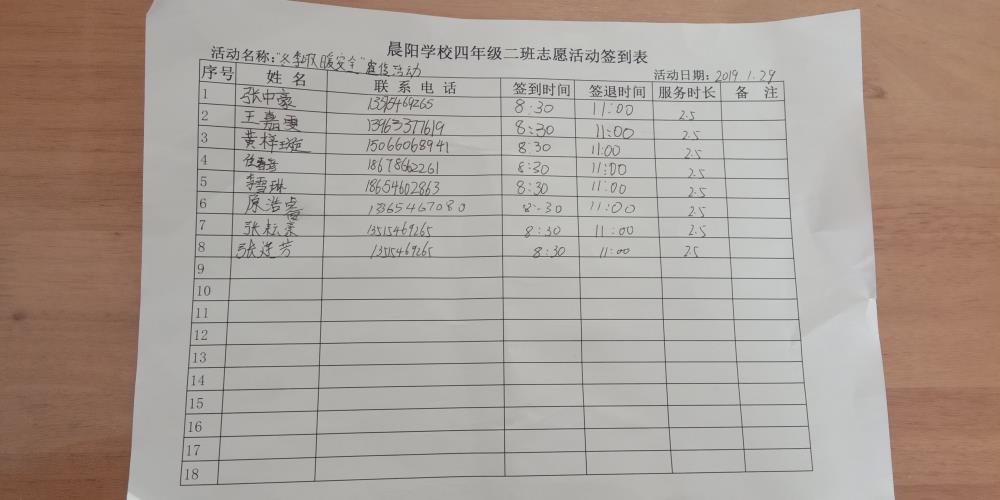 晨阳学校四年级二班志愿活动签到表
活动名称:"冬季取暖安全"宣传活动 活动日期: 2019.1.29
序号 姓名 联系电话 签到时间 签退时间 服务时长 备注
1 张中豪 13515469265 8:30 11:00 2.5
2 王嘉雯 13963377619 8:30 11:00 2.5
3 黄梓璇 15066068941 8:30 11:00 2.5
4 18678662261 8:30 11:00 2.5
5 李雪琳 18654602863 8:30 11:00 2.5
6 原浩 13365467080 8:30 11:00 2.5
7 张 13515469265 8:30 11:00 2.5
8 张莲芳 13515469265 8:30 11:00 2.5
9
10
11
12
13
14
15
16
17
18